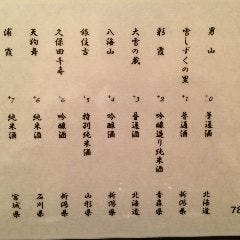 男山 +0 普通酒 北海道
雪しずくの里 +1 普通酒 新潟県
彩霞 +2 吟醸造り純米酒 青森県
大雪の蔵 +3 普通酒 北海道
八海山 +4 吟醸酒 新潟県
銀住吉 +5 特別純米酒 山形県
久保田千寿 +6 吟醸酒 新潟県
天狗舞 +6 純米酒 石川県
浦霞 +7 純米酒 宮城県